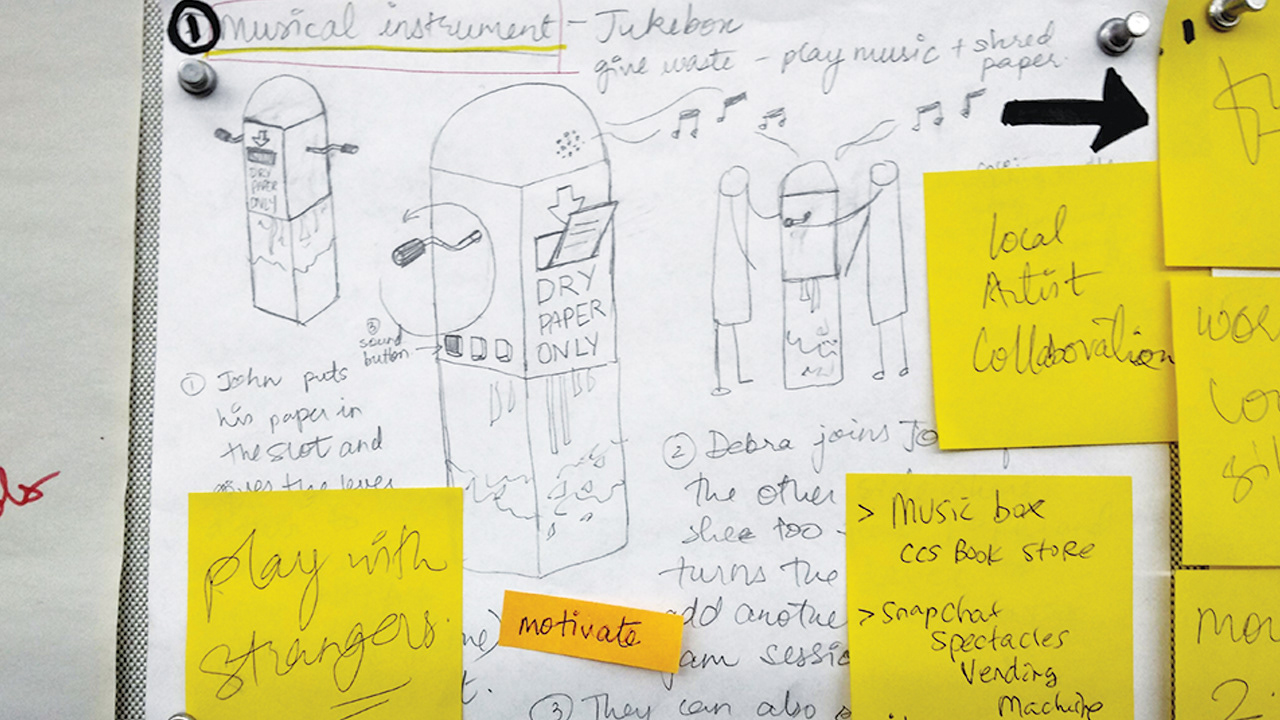 ① Musical instrument - Jukebox
give waste - play music + shred
paper.
DRY
PAPER
ONLY
DRY
PAPER
ONLY
③
sound
button
① John puts
his paper in
the slot and
gives the lever
② Debra joins
the other
shee too -
turns the
add
jam
③ They can also
Local
Artist
Collaboration
play with
strangers.
motivate
> Music box
CCS Book store
> Snapchat
Spectacles
Vending
Machine